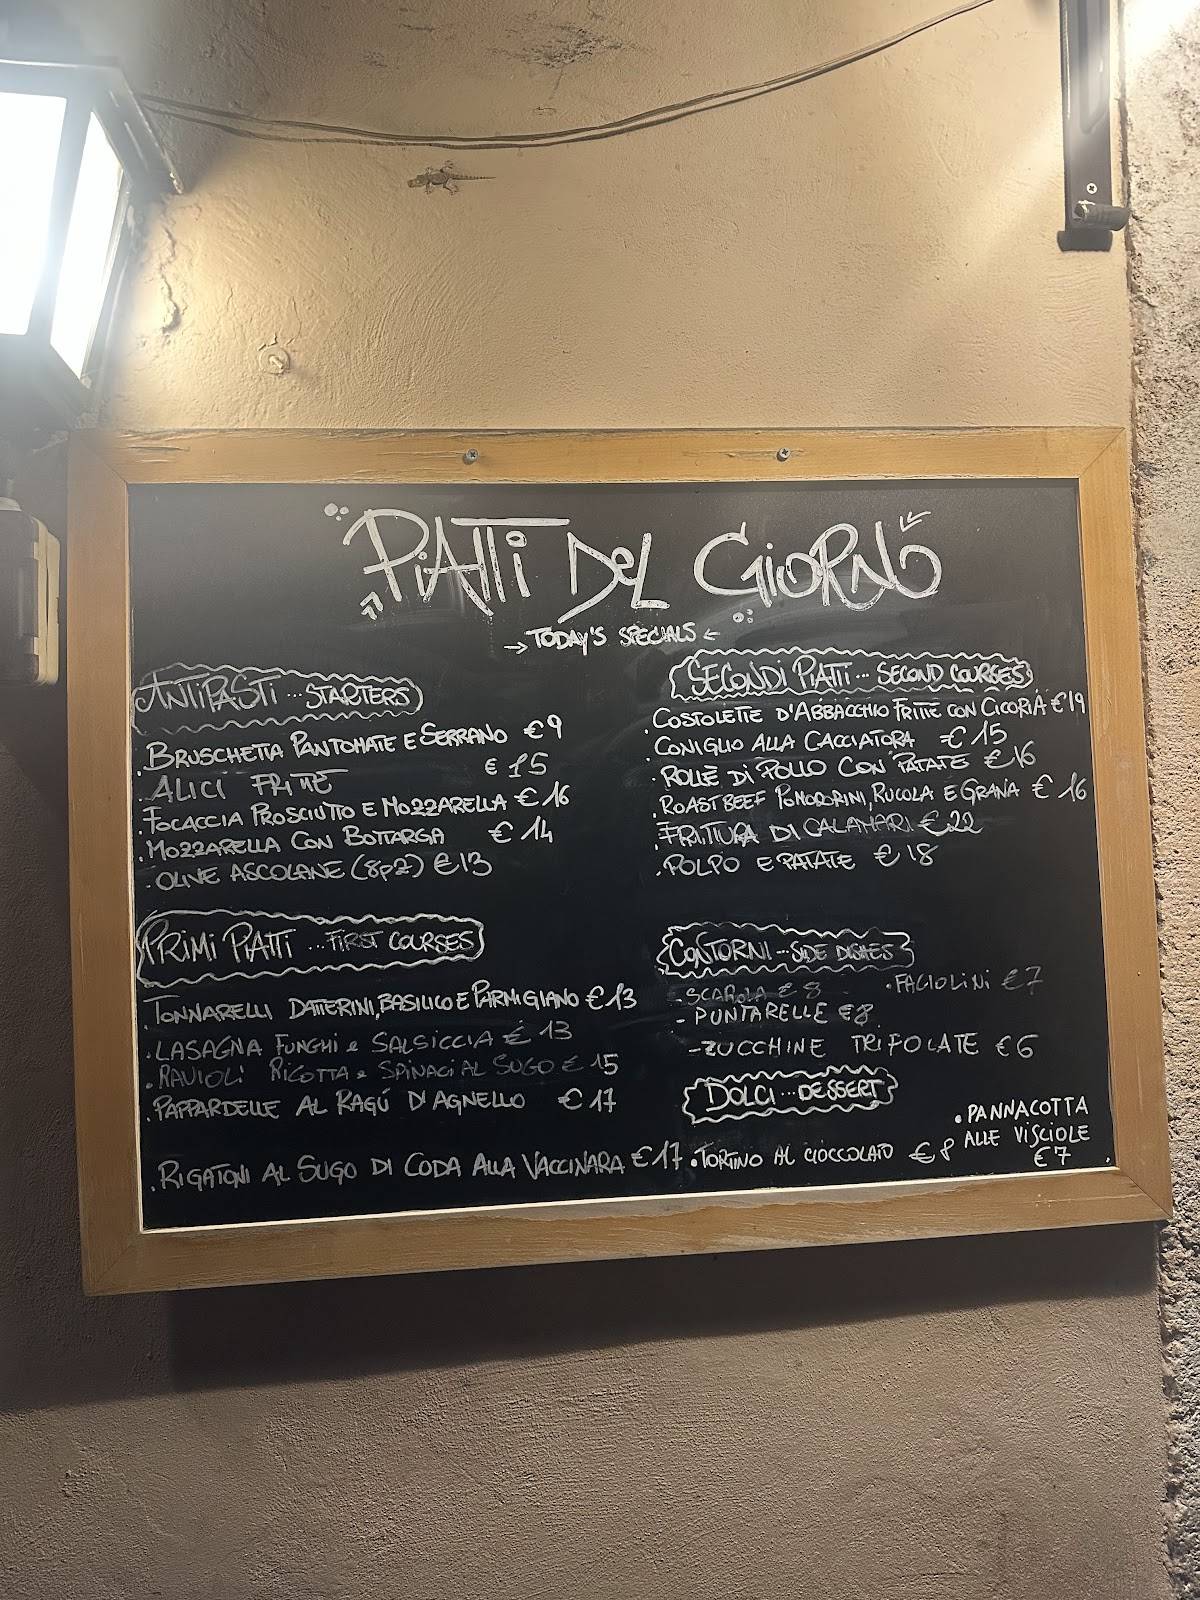 PIATTI DEL GIORNO
TODAY'S SPECIALS
ANTIPASTI ... STARTERS
. BRUSCHETTA PANTOMATE E SERRANO € 9
. ALICI FRITTE € 15
. FOCACCIA PROSCIUTTO E MOZZARELLA € 16
. MOZZARELLA CON BOTTARGA € 14
. OLIVE ASCOLANE (8pz) € 13
PRIMI PIATTI ... FIRST COURSES
. TONNARELLI DATTERINI, BASILICO E PARMIGIANO € 13
. LASAGNA FUNGHI e SALSICCIA € 13
. RAVIOLI RICOTTA e SPINACI AL SUGO € 15
. PAPPARDELLE AL RAGÚ D'AGNELLO € 17
. RIGATONI AL SUGO DI CODA ALLA VACCINARA € 17
SECONDI PIATTI ... SECOND COURSES
. COSTOLETTE D'ABBACCHIO FRITTE CON CICORIA € 19
. CONIGLIO ALLA CACCIATORA € 15
. ROLLÈ DI POLLO CON PATATE € 16
. ROAST BEEF POMODORINI, RUCOLA E GRANA € 16
. FRITTURA DI CALAMARI € 22
. POLPO E PATATE € 18
CONTORNI ... SIDE DISHES
- SCAROLA € 8
. FAGIOLINI € 7
- PUNTARELLE € 8
- ZUCCHINE TRIFOLATE € 6
DOLCI ... DESSERT
. TORTINO AL CIOCCOLATO € 8
. PANNACOTTA
ALLE VISCIOLE
€ 7